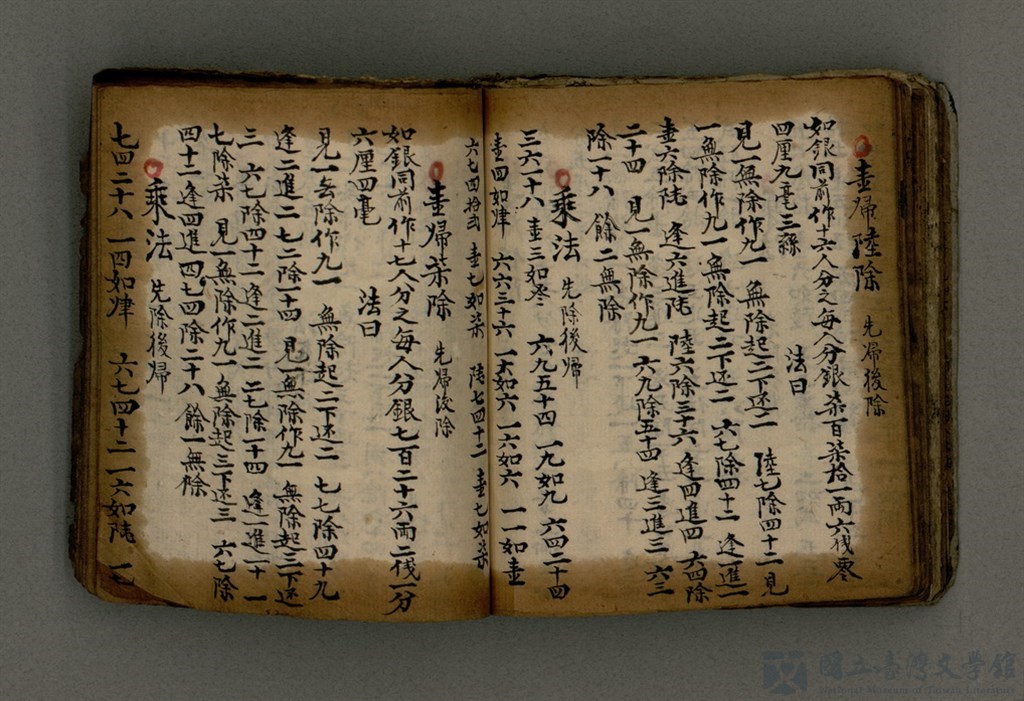 壹帰陸除 先帰後除
如銀同前作十六人分之每人分銀柒百柒拾一兩六戋零
四厘九毫三絲 法曰
見一無除作九一 無除起二下还二 陸七除四十二 見
一無除作九一 無除起二下还二 六七除四十二 逢一進一
壹六除陸 逢六進陸 陸六除三十六 逢四進四 六四除
二十四 見一無除作九一 六九除五十四 逢三進三 六三
除一十八 餘二無除
乘法 先除後帰
三六一十八 壹三如叁 六九五十四 一九如九 六四二十四
壹四如肆 六六三十六 一六如六 一六如六 一一如壹
六七四拾弍 壹七如柒 陸七四十二 壹七如柒
壹帰柒除 先帰後除
如銀同前作十七人分之每人分銀七百二十六兩二戋一分
六厘四毫 法曰
見一無除作九一 無除起二下还二 七七除四十九
逢二進二 七二除十四 見一無除作九一 無除起三下还
三 六七除四十二 逢二進二 二七除一十四 逢一進一十一
七除柒 見一無除作九一 無除起三下还三 六七除
四十二 逢四進四 七四除二十八 餘一無除
乘法 先除後帰
七四二十八 一四如肆 六七四十二 一六如陸 一七
國立臺灣文學館
National Museum of Taiwan Literature